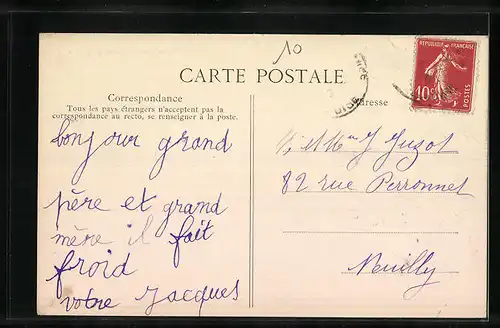 10
CARTE POSTALE
RÉPUBLIQUE FRANÇAISE
10c
POSTES
Correspondance
Tous les pays étrangers n'acceptent pas la
correspondance au recto, se renseigner à la poste.
Adresse
bonjour grand
père et grand
mère il fait
froid
votre Jacques
82 rue Perronnet
Neuilly